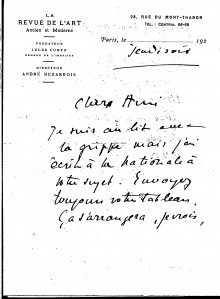 LA
REVUE DE L'ART
Ancien et Moderne
FONDATEUR
JULES COMTE
MEMBRE DE L'INSTITUT
DIRECTEUR
ANDRÉ DEZARROIS
28, RUE DU MONT-THABOR
TÉL. : CENTRAL
Paris, le 192
Jeudi soir
Chers Amis
Je suis au lit avec
la grippe mais j'ai
écrit à la Nationale à
votre sujet. Envoyez
toujours votre tableau.
Ça s'arrangera, je crois,